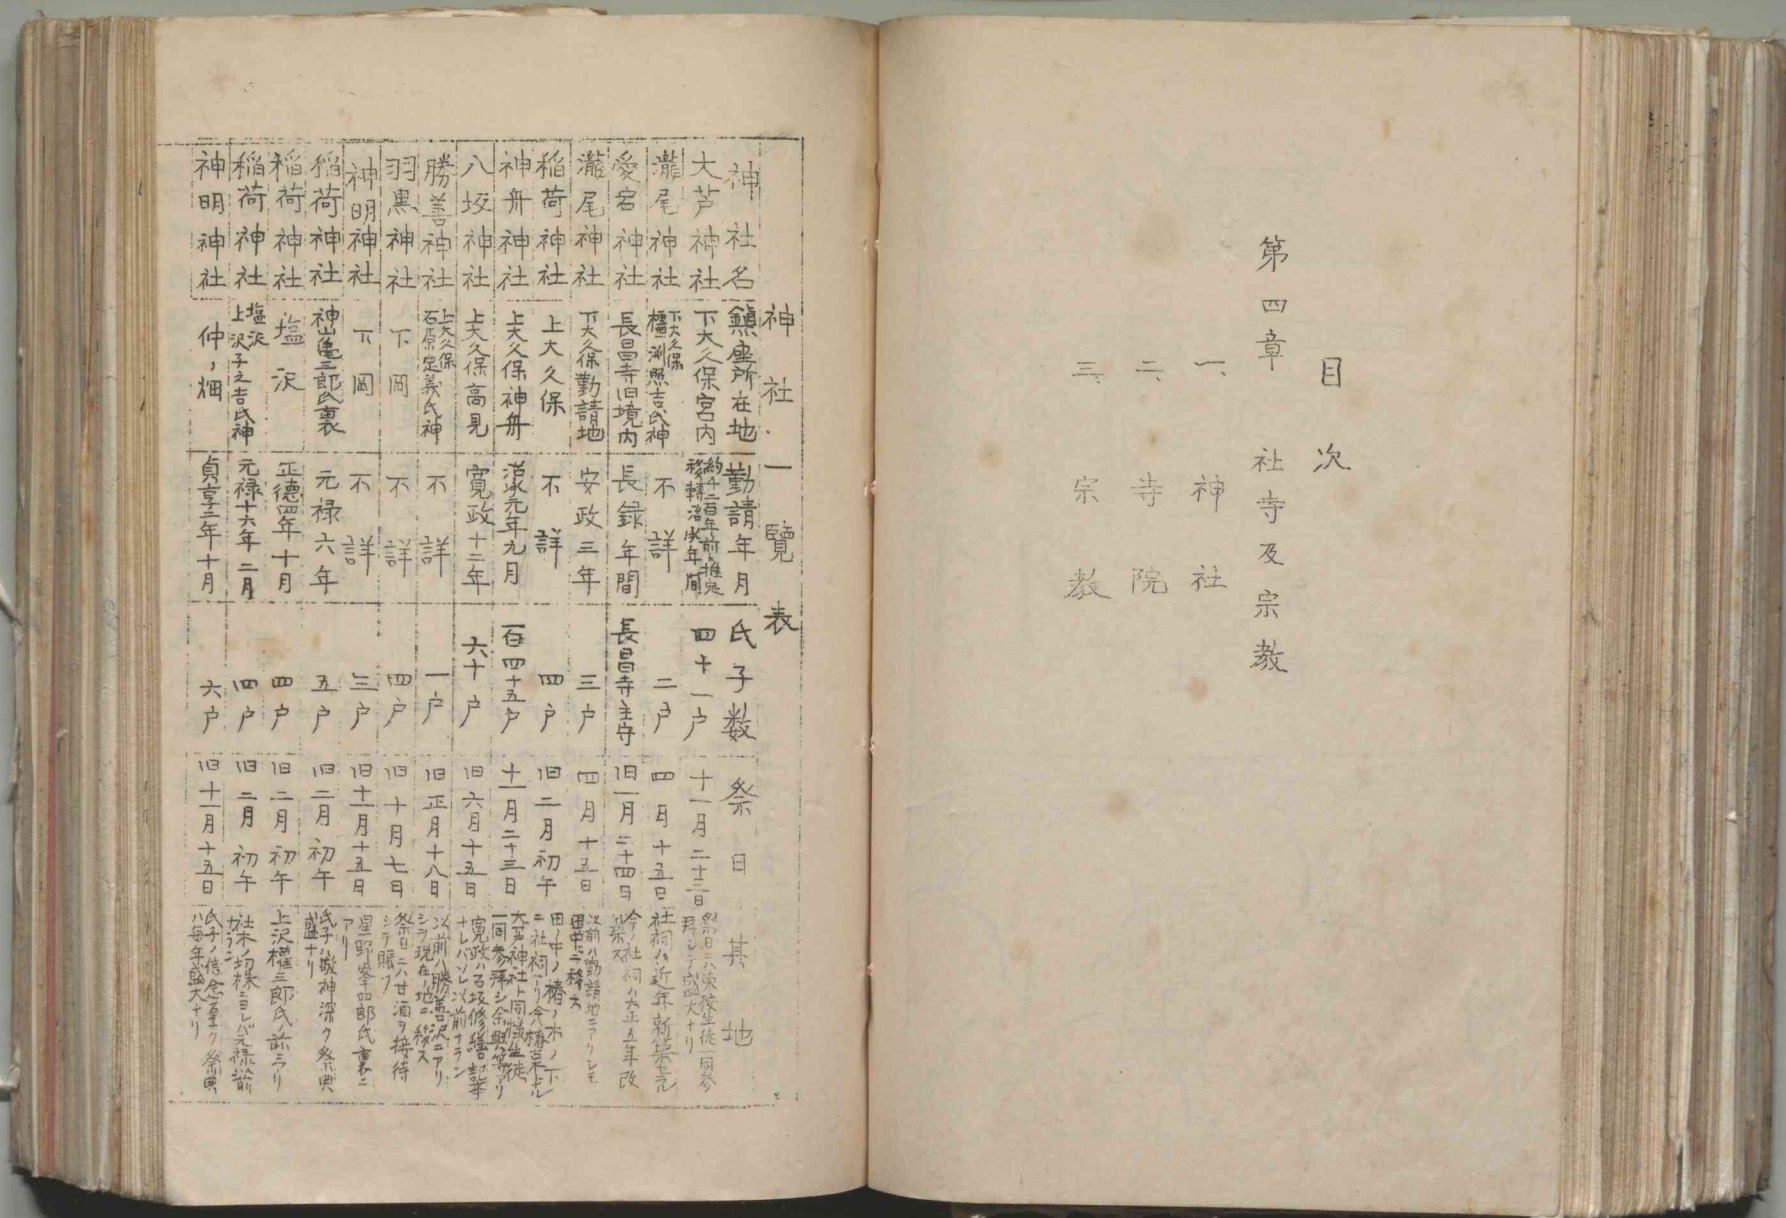 目次
第四章 社寺及宗教
一、神社
二、寺院
三、宗教
神社一覧表
神社名 鎮座所在地 勤請年月 氏子数 祭日 其地
大芦神社 下大久保宮内 約千二百年前ト推定 移轉治承年間 四十一户 十一月二十三日 祭日ニハ東校生徒一同参拜シテ盛大ナリ
瀧尾神社 下大久保 渕照吉氏神 不詳 二户 四月十五日 社祠ハ近年新築セラル
愛宕神社 長昌寺旧境内 長録年間 長昌寺主守 旧一月二十四日 今ノ社祠ハ大正五年改築ス
瀧尾神社 下大久保勤請地 安政三年 三户 四月十五日 以前ハ勤請地ニアリシモ田中ニ移ス
稲荷神社 上大久保 不詳 四户 旧二月初午 田ノ中ノ椿ノ木ノ下ニ社祠アリ今ハ椿
神舟神社 上大久保神舟 治承元年九月 百四十五户 十一月二十三日 大芦神社ト同様生徒一同参拜シ余興等アリ
八坂神社 上大久保高見 寛政十二年 六十户 旧六月十五日 寛政ハ石坂修繕記事ナレバソレ以前ナラン
勝善神社 上大久保 石原定義氏神 不詳 一户 旧正月十八日 以前ハ勝善沢ニアリシヲ現在ノ地ニ移ス
羽黒神社 下岡 不詳 四户 旧十月七日 祭日ニハ甘酒ヲ接待シテ賑フ
神明神社 下岡 不詳 三户 旧十一月十五日 星野峯四郎氏裏ニアリ
稲荷神社 神山亀三郎氏裏 元禄六年 五户 旧二月初午 氏子ハ敬神深ク祭典盛ナリ
稲荷神社 塩沢 正德四年十月 四户 旧二月初午 上沢權三郎氏
稲荷神社 塩沢 上沢子之吉氏神 元禄十六年二月 四户 旧二月初午 社木ノ切株ニヨレバ元禄前ナラン
神明神社 仲ノ畑 貞享二年十月 六户 旧十一月十五日 氏子ノ信念厚ク祭典ハ毎年盛大ナリ